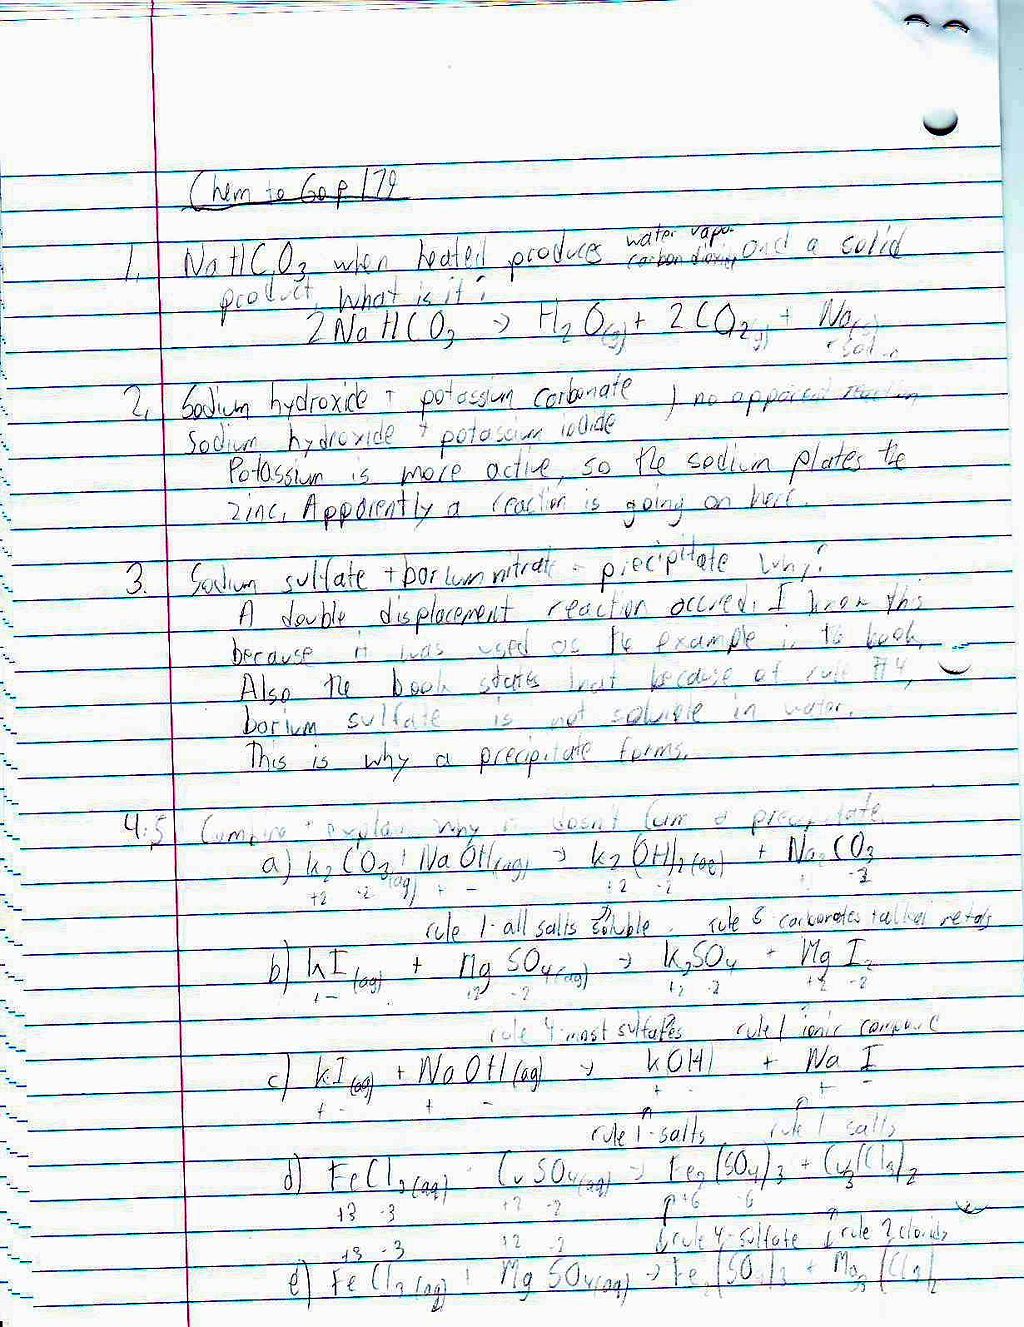 Chem to Go p 179
1. NaHCO3 when heated produces water vapor carbon dioxide and a solid
product. What is it?
2NaHCO3 → H2O(g) + 2CO2(g) + Na(s)
2. Sodium hydroxide + potassium carbonate ) no apparent reaction
Sodium hydroxide + potassium iodide
Potassium is more active, so the sodium plates the
zinc. Apparently a reaction is going on here.
3. Sodium sulfate + barium nitrate - precipitate why?
A double displacement reaction occred. I know this
because it was used as the example in the book.
Also the book states that because of rule #4,
barium sulfate is not soluble in water.
This is why a precipitate forms.
4.5 Combine + explain why it doesn't form a precipitate.
a) K2CO3(aq) + NaOH(aq) → K2(OH)2(aq) + Na2CO3
+2 -2 + - +2 -2
rule 1-all salts soluble. rule 5 carbonates alkali metals
b) KI(aq) + MgSO4(aq) → K2SO4 + MgI2
+ - +2 -2 +2 -2 +2 -2
rule 4-most sulfates rule 1 ionic compound
c) KI(aq) + NaOH(aq) → KOH + NaI
+ - + - + - + -
rule 1-salts rule 1 salts
d) FeCl3(aq) + CuSO4(aq) → Fe2(SO4)3 + Cu3(Cl3)2
+3 -3 +2 -2 +6 -6
rule 4-sulfate rule 2
+3 -3 +2 -2
e) FeCl3(aq) + MgSO4(aq) → Fe2(SO4)3 + Mg3(Cl3)2